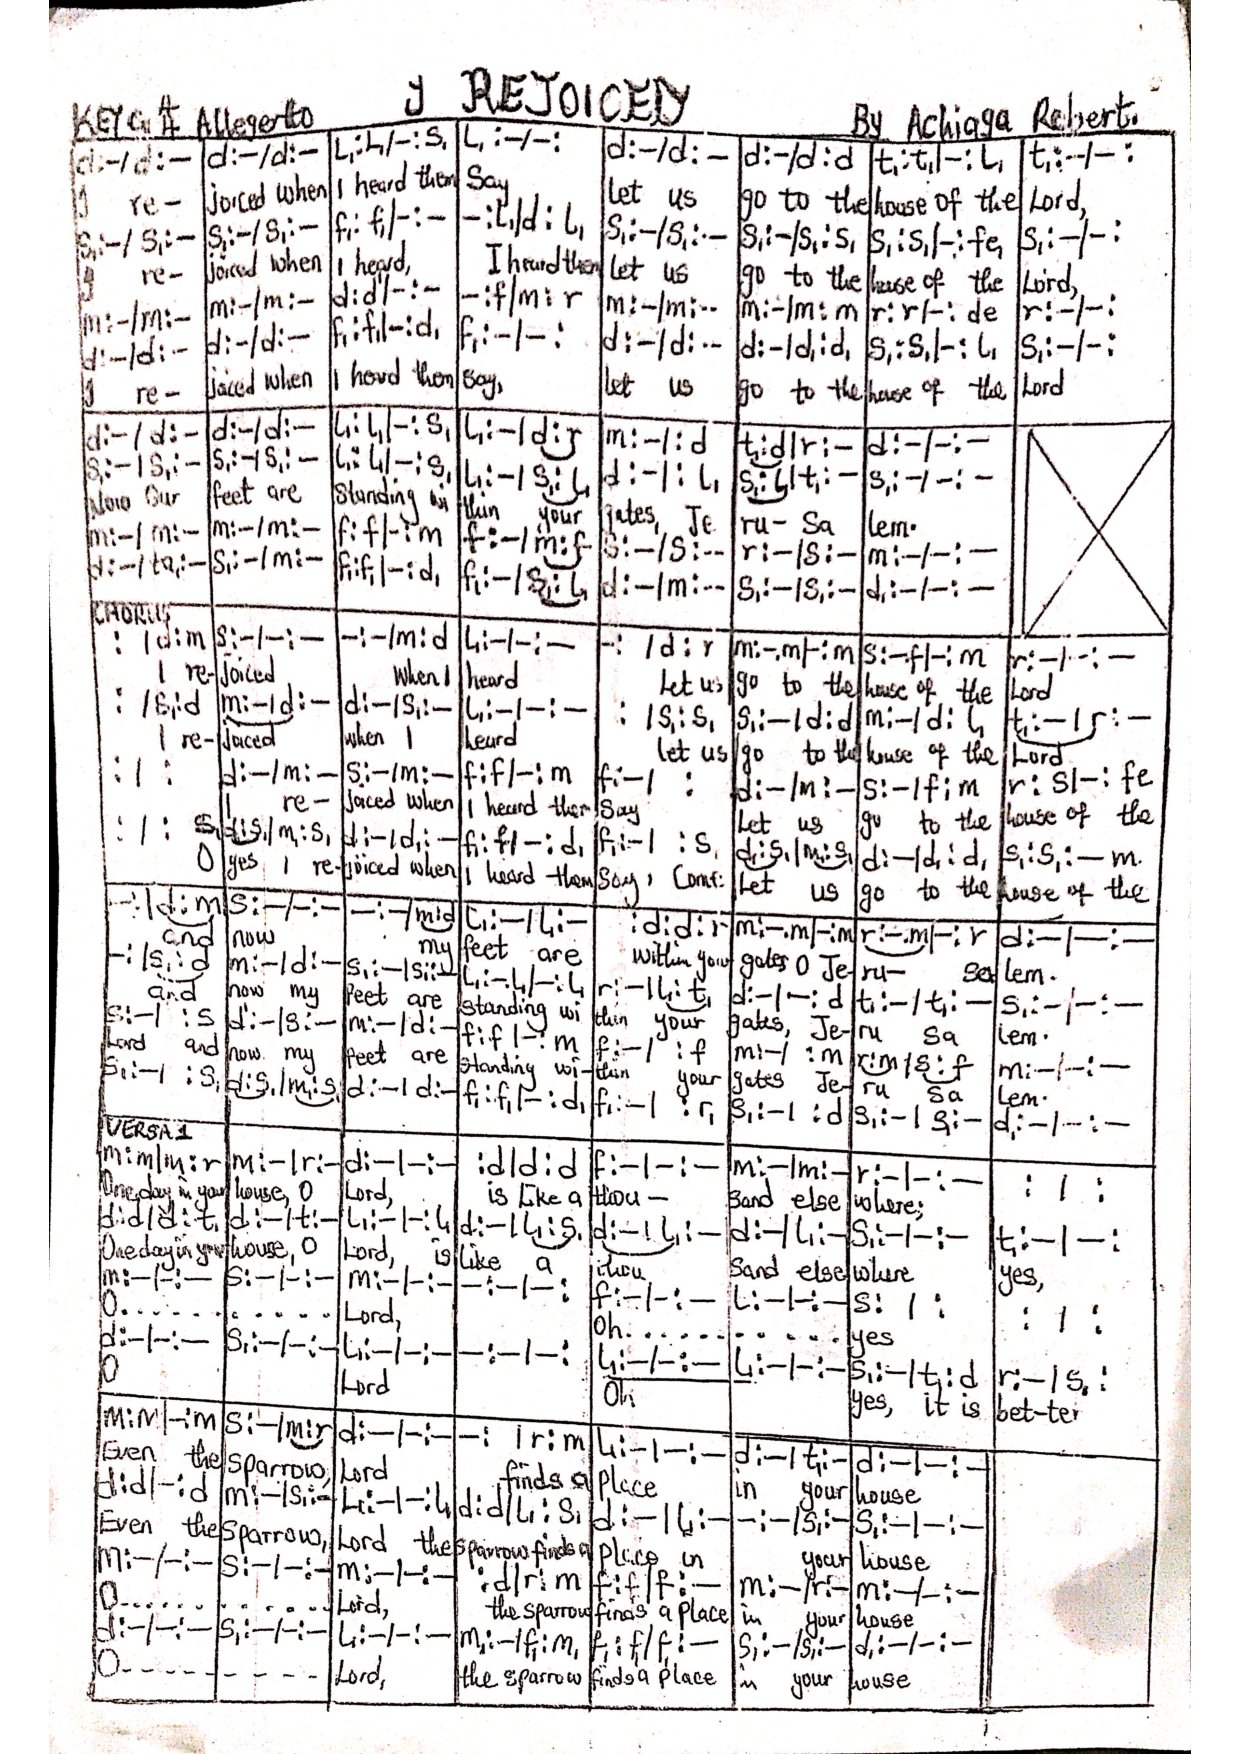 I REJOICED
KEY G# Allegerto By Achiaga Robert.
d:-/d:- d:-/d:- L₁:L₁/-:S₁ L₁:-/-: d:-/d:- d:-/d:d t₁:t₁/-:L₁ t₁:-/-:
I re- joiced when I heard them Say let us go to the house of the Lord,
S₁:-/S₁:- S₁:-/S₁:- f₁:f₁/-:- -:L₁/d:L₁ S₁:-/S₁:- S₁:-/S₁:S₁ S₁:S₁/-:fe₁ S₁:-/-:
I re- joiced when I heard, I heard them let us go to the house of the Lord,
m:-/m:- m:-/m:- d:d/-:- -:f/m:r m:-/m:- m:-/m:m r:r/-:de r:-/-:
d:-/d:- d:-/d:- f₁:f₁/-:d₁ f₁:-/-: d:-/d:- d:-/d₁:d₁ S₁:S₁/-:L₁ S₁:-/-:
I re- joiced when I heard them say, let us go to the house of the Lord
d:-/d:- d:-/d:- L₁:L₁/-:S₁ L₁:-/d:r m:-/:d t₁:d/r:- d:-/-:-
S₁:-/S₁:- S₁:-/S₁:- L₁:L₁/-:S₁ L₁:-/S₁:L₁ d:-/:L₁ S₁:L₁/t₁:- S₁:-/-:-
Now Our feet are Standing wi thin your gates, Je ru- Sa lem.
m:-/m:- m:-/m:- f:f/-:m f:-/m:f S:-/S:- r:-/S:- m:-/-:-
d:-/ta₁:- S₁:-/m:- f₁:f₁/-:d₁ f₁:-/S₁:L₁ d:-/m:- S₁:-/S₁:- d₁:-/-:-
CHORUS
: /d:m S:-/-:- -:-/m:d L₁:-/-:- -: /d:r m:-.m/-:m S:-.f/-:m r:-/-:-
I re- joiced When I heard Let us go to the house of the Lord
: /S₁:d m:-/d:- d:-/S₁:- L₁:-/-:- : /S₁:S₁ S₁:-/d:d m:-/d:L₁ t₁:-/r:-
I re- joiced when I heard let us go to the house of the Lord
: / : d:-/m:- S:-/m:- f:f/-:m f:-/ : d:-/m:- S:-/f:m r:S/-:fe
I re- joiced when I heard them Say Let us go to the house of the
: / : S₁ d:S₁/m:S₁ d:-/d₁:- f₁:f₁/-:d₁ f₁:-/ :S₁ d:S₁/m:S₁ d:-/d₁:d₁ S₁:S₁:-m.
O yes I re- joiced when I heard them Say, Come: Let us go to the house of the
-:/d:m S:-/-:- -:-/m:d L₁:-/L₁:- :d:d:r m:-.m/-:m r:-.m/-:r d:-/-:-
and now my feet are within your gates O Je- ru- Sa lem.
-:/S₁:d m:-/d:- S₁:-/S₁:- L₁:-L₁/-:L₁ r:-/L₁:t₁ d:-/-:d t₁:-/t₁:- S₁:-/-:-
and now my feet are standing wi thin your gates, Je- ru Sa lem.
S:-/ :S d:-/S:- m:-/d:- f:f/-:m f:-/ :f m:-/ :m r:m/S:f m:-/-:-
Lord and now my feet are standing wi- thin your gates Je- ru Sa Lem.
S₁:-/ :S₁ d:S₁/m:S₁ d:-/d:- f₁:f₁/-:d₁ f₁:-/ :r₁ S₁:-/ :d S₁:-/S₁:- d₁:-/-:-
VERSA 1
m:m/m:r m:-/r:- d:-/-:- :d/d:d f:-/-:- m:-/m:- r:-/-:- : / :
One day in your house, O Lord, is Like a thou- sand else where;
d:d/d:t₁ d:-/t:- L₁:-/-:L₁ d:-/L₁:S₁ d:-/L₁:- d:-/L₁:- S₁:-/-:- t₁:-/-:
One day in your house, O Lord, is Like a thou Sand else where yes,
m:-/-:- S:-/-:- m:-/-:- -:-/-: f:-/-:- L:-/-:- S: / : : / :
O.......... Lord, Oh.......... yes
d:-/-:- S₁:-/-:- L₁:-/-:- -:-/-: L₁:-/-:- L₁:-/-:- S₁:-/t₁:d r:-/S₁:
O Lord Oh yes, it is bet-ter
m:m/-:m S:-/m:r d:-/-:- -: /r:m L₁:-/-:- d:-/t₁:- d:-/-:-
Even the sparrow, Lord finds a place in your house
d:d/-:d m:-/S₁:- L₁:-/-:L₁ d:d/L₁:S₁ d:-/L₁:- -:-/S₁:- S₁:-/-:-
Even the Sparrow, Lord the sparrow finds a place in your house
m:-/-:- S:-/-:- m:-/-:- :d/r:m f:f/f:- m:-/r:- m:-/-:-
O.......... Lord, the sparrow finds a place in your house
d:-/-:- S₁:-/-:- L₁:-/-:- m₁:-/f₁:m₁ f₁:f₁/f₁:- S₁:-/S₁:- d₁:-/-:-
O---------- Lord, the sparrow finds a place in your house